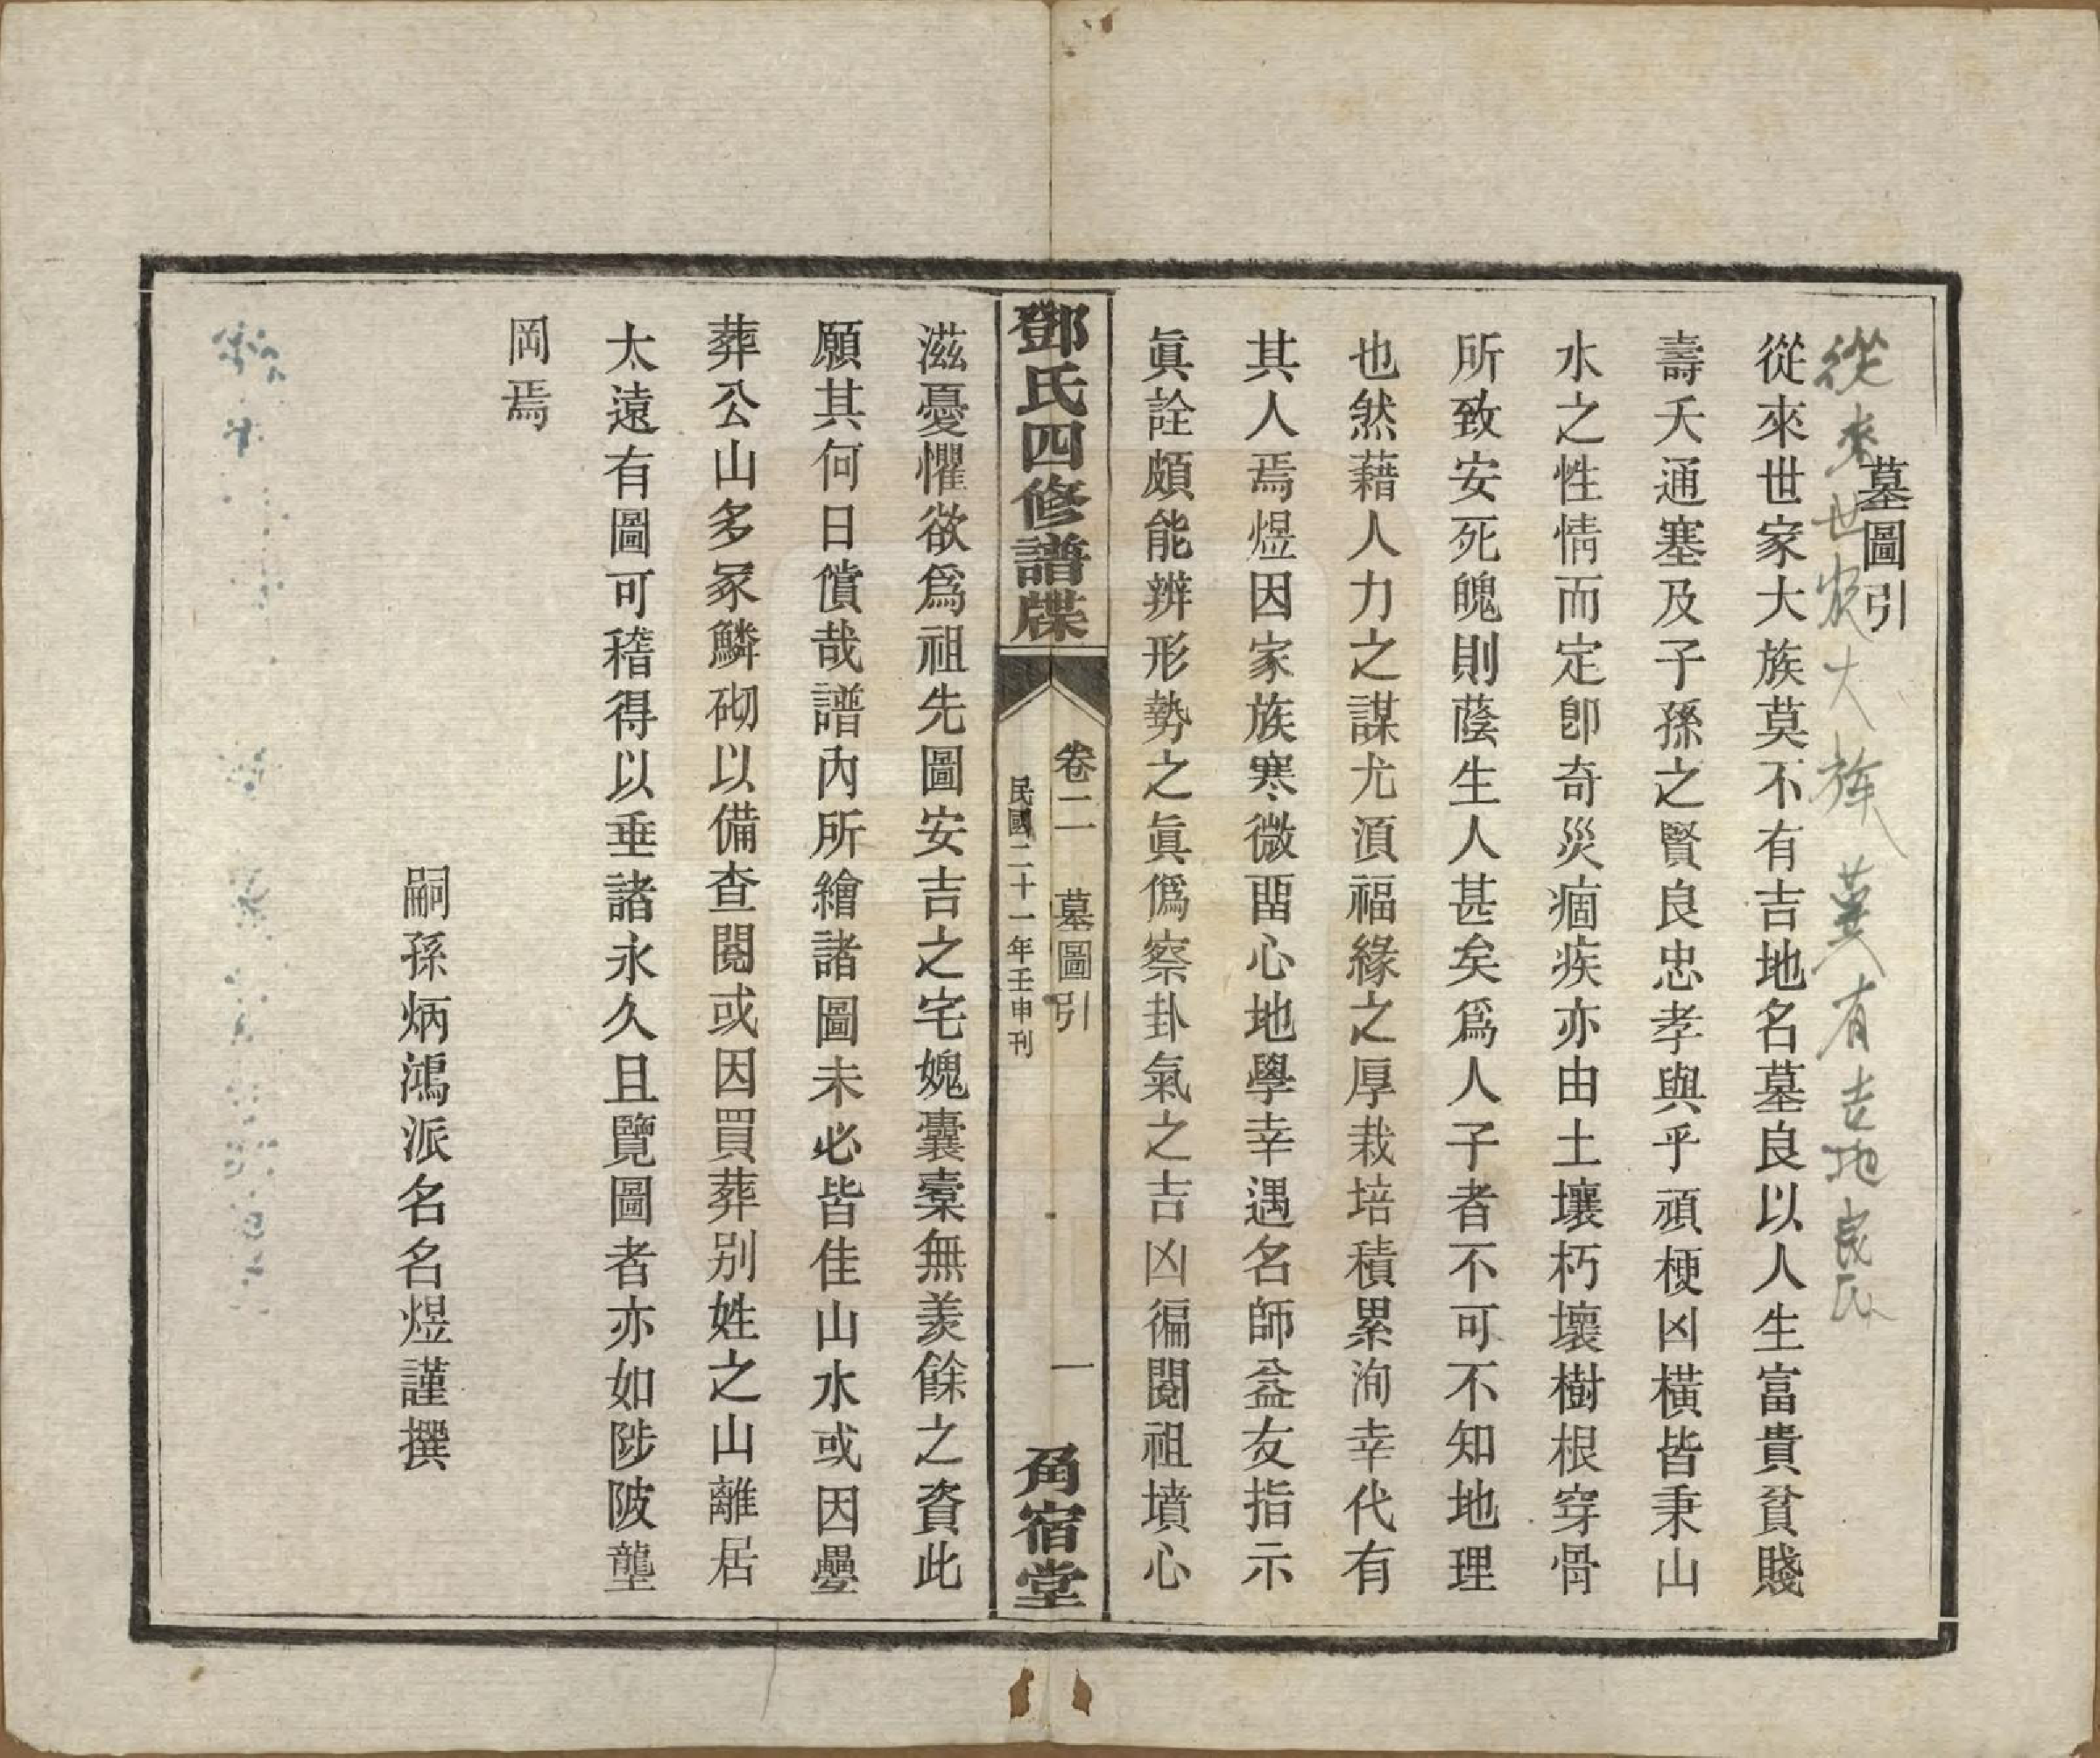 墓圖引
從來世家大族莫不有吉地名墓良以人生富貴貧賤
壽夭通塞及子孫之賢良忠孝與乎頑梗凶橫皆秉山
水之性情而定卽奇災痼疾亦由土壤朽壞樹根穿骨
所致安死魄則蔭生人甚矣爲人子者不可不知地理
也然藉人力之謀尤湏福緣之厚栽培積累洵幸代有
其人焉煜因家族寒微畱心地學幸遇名師益友指示
眞詮頗能辨形勢之眞僞察卦氣之吉凶徧閱祖墳心
鄧氏四修譜牒
卷二 墓圖引 一
民國二十一年壬申刊
角宿堂
滋憂懼欲爲祖先圖安吉之宅媿囊橐無羨餘之資此
願其何日償哉譜內所繪諸圖未必皆佳山水或因壘
葬公山多冢鱗砌以備查閱或因買葬别姓之山離居
太遠有圖可稽得以垂諸永久且覽圖者亦如陟陂壟
岡焉
嗣孫炳鴻派名名煜謹撰
從來世家大族莫有吉地良民